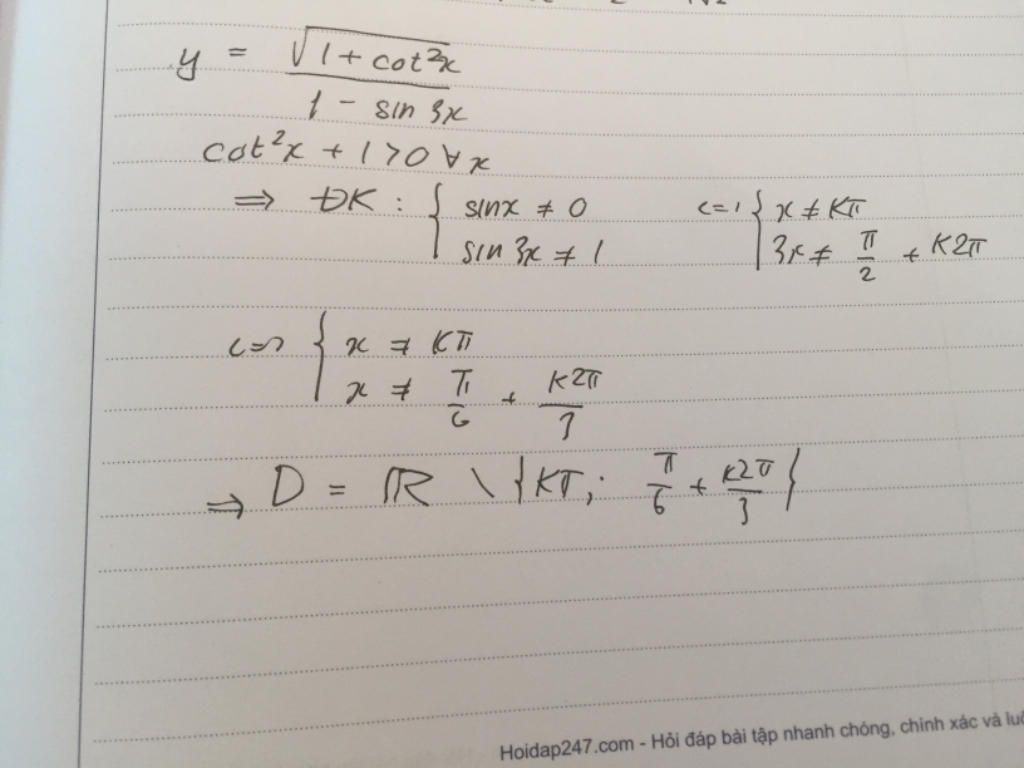 y = √(1 + cot²x) / (1 - sin 3x)
cot²x + 1 > 0 ∀x
⇒ ĐK : { sinx ≠ 0 ; sin 3x ≠ 1 <=> { x ≠ kπ ; 3x ≠ π/2 + k2π
<=> { x ≠ kπ ; x ≠ π/6 + k2π/3
⇒ D = ℝ \ {kπ; π/6 + k2π/3}
Hoidap247.com - Hỏi đáp bài tập nhanh chóng, chính xác và